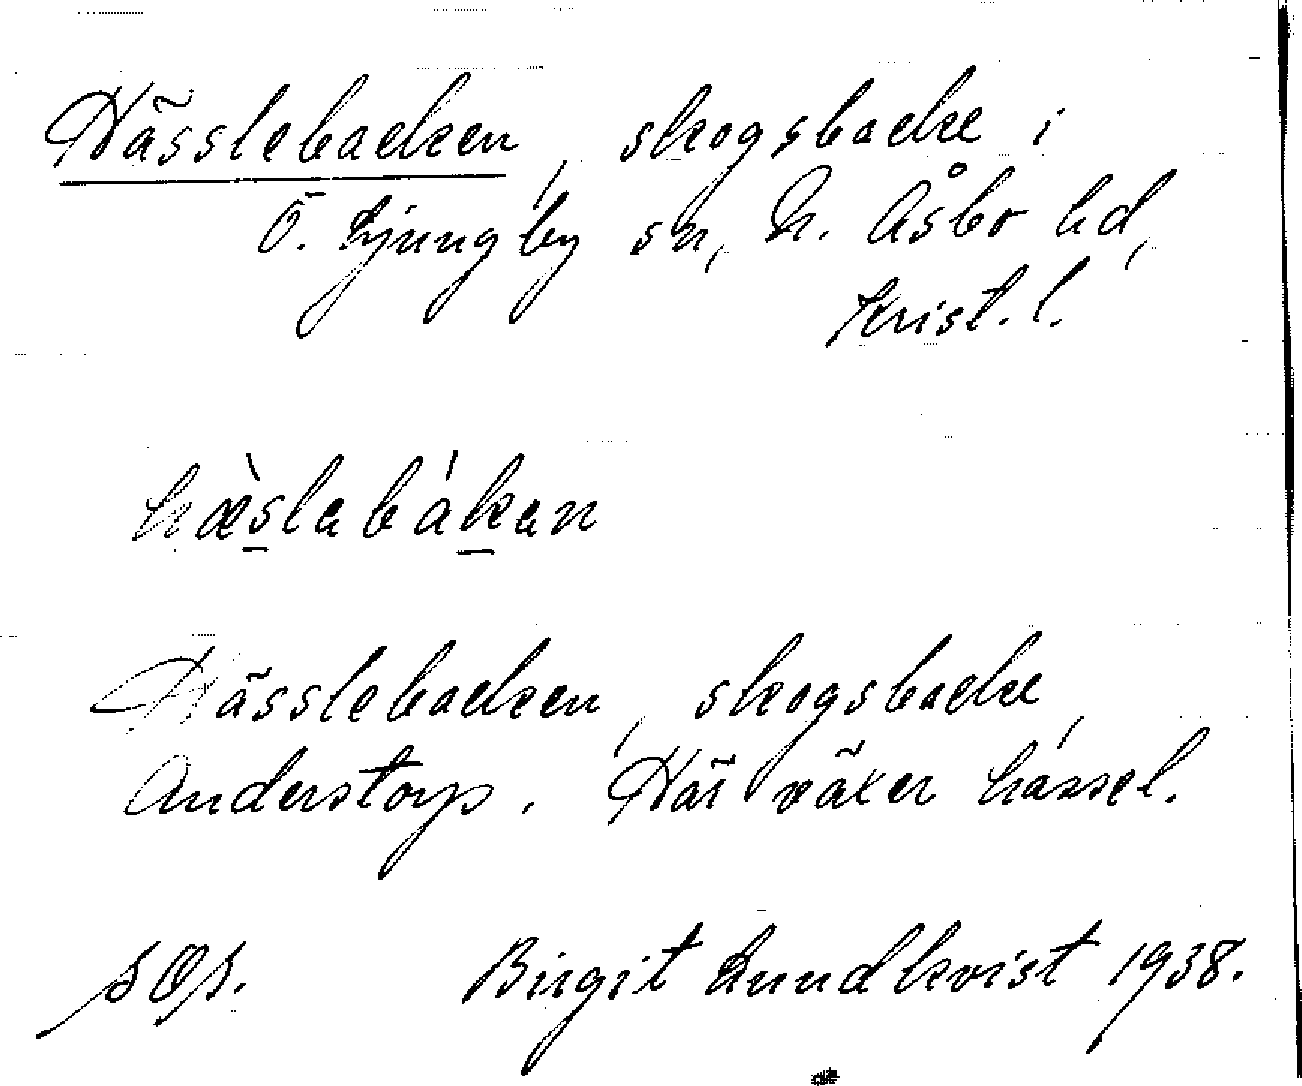 Hässlebacken, skogsbacke i
Ö. Ljungby sn, N. Åsbo hd,
Krist. l.
hæ̀slabákan
Hässlebacken, skogsbacke,
Anderstorp. Här växer hassel.
Birgit Lundkvist 1938.